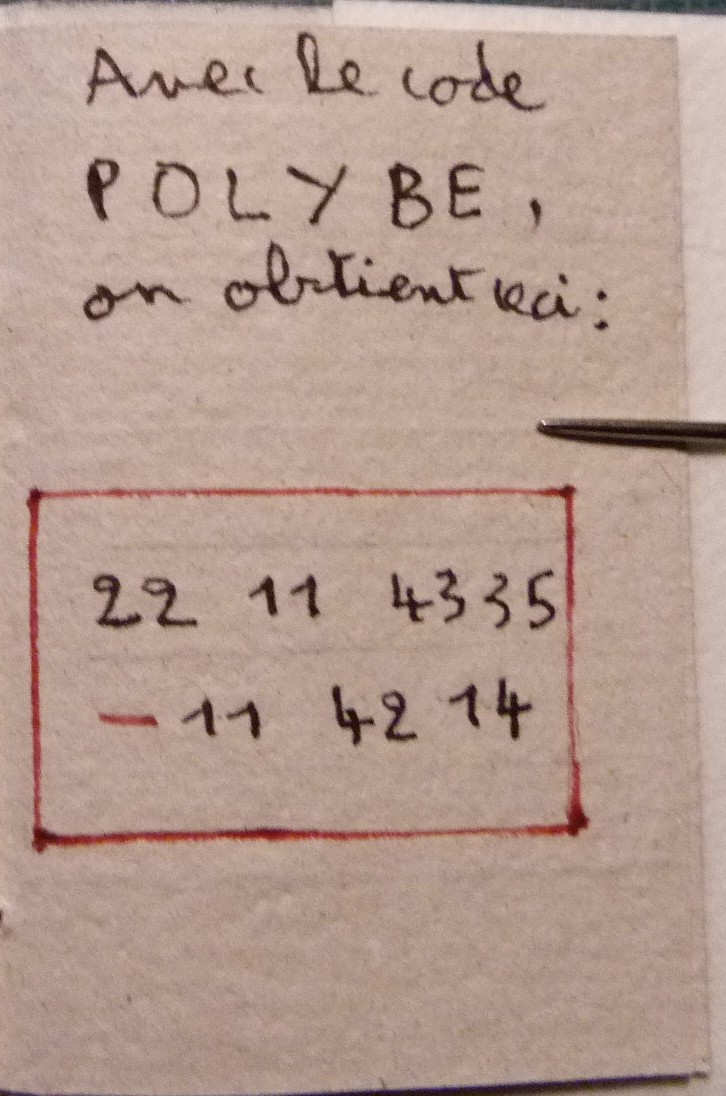 Avec le code
POLYBE,
on obtient ceci:
22 11 43 35
- 11 42 14